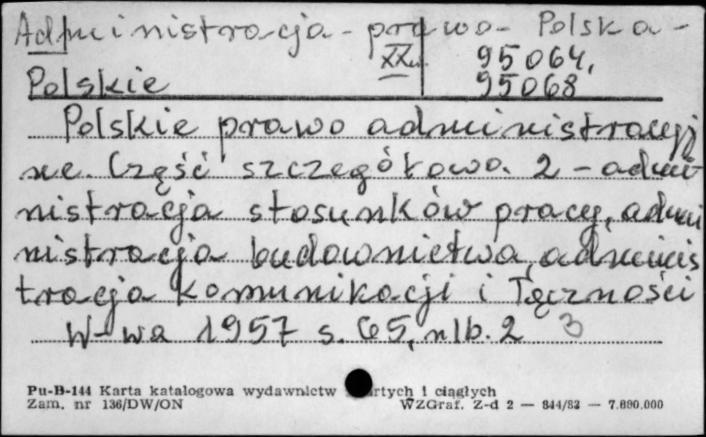 Administracja - prawo - Polska -
XXw. 95064,
Polskie 95068
Polskie prawo administracyj
ne. Część szczegółowa. 2 - admi
nistracja stosunków pracy, admi
nistracja budownictwa, adminis
tracja komunikacji i łączności
W-wa 1957 s. 65, nlb. 2 3
Pu-B-144 Karta katalogowa wydawnictw artych i ciągłych
Zam. nr 136/DW/ON WZGraf. Z-d 2 — 844/83 — 7.800.000